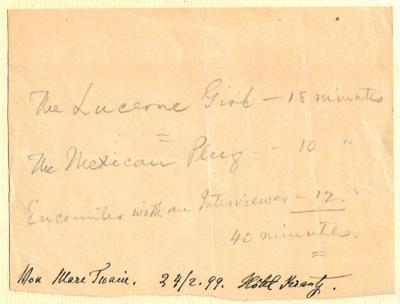 The Lucerne Girl — 18 minutes
The Mexican Plug -- 10 "
Encounter with an Interviewer — 12 "
40 minutes.
Von Marc Twain. 24/2.99. Hôtel Krantz.